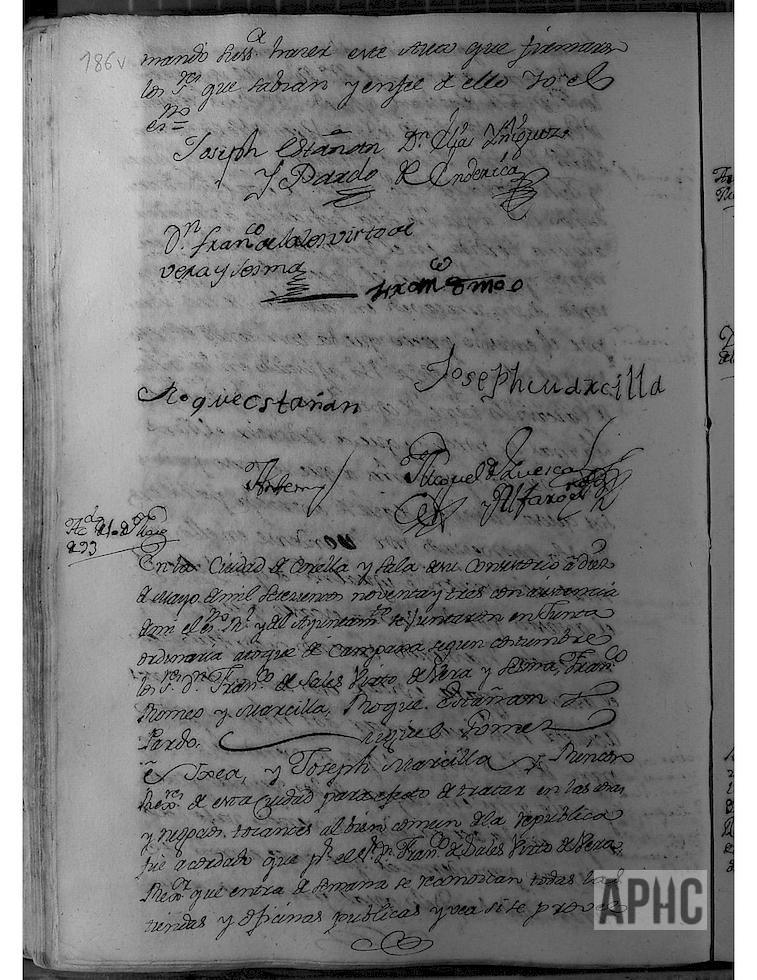 186v
mando hess.a hazer este Auto que firmaron
los S.res que sabian y en fee de ello Yo el
es.no =
Joseph Estañan
y Pardo
D.n Elias Yñiguez
de Enderica
D.n Fran.co de Sales Virto de
Vera y Sesma
Roque estañan
Joseph Marcilla
Antemy
Miguel de Luesca
y Alfaro es.no
de 93
En la Ciudad de Corella y Sala de su Consistorio a diez
de Mayo de mil Setecientos noventa y tres con asistencia
de mi el es.no R.l y del Ayuntam.to se Juntaron en Junta
ordinaria atoque de Campana segun costumbre
los S.res D.n Fran.co de Sales Virto de Vera y Sesma, Fran.co
Romeo y Marcilla, Roque Estañan y
Pardo, Miguel Gomez
de Exea, y Joseph Marcilla y Rincon
Rex.res de esta Ciudad para efecto de tratar en las cosas
y negocios tocantes al bien comun de la republica
fue acordado que p.r el S.r D.n Fran.co de Sales Virto de Vera,
Rex.or que entra de Semana se reconozcan todas las
tiendas y oficinas publicas y vea si se provee
APHC